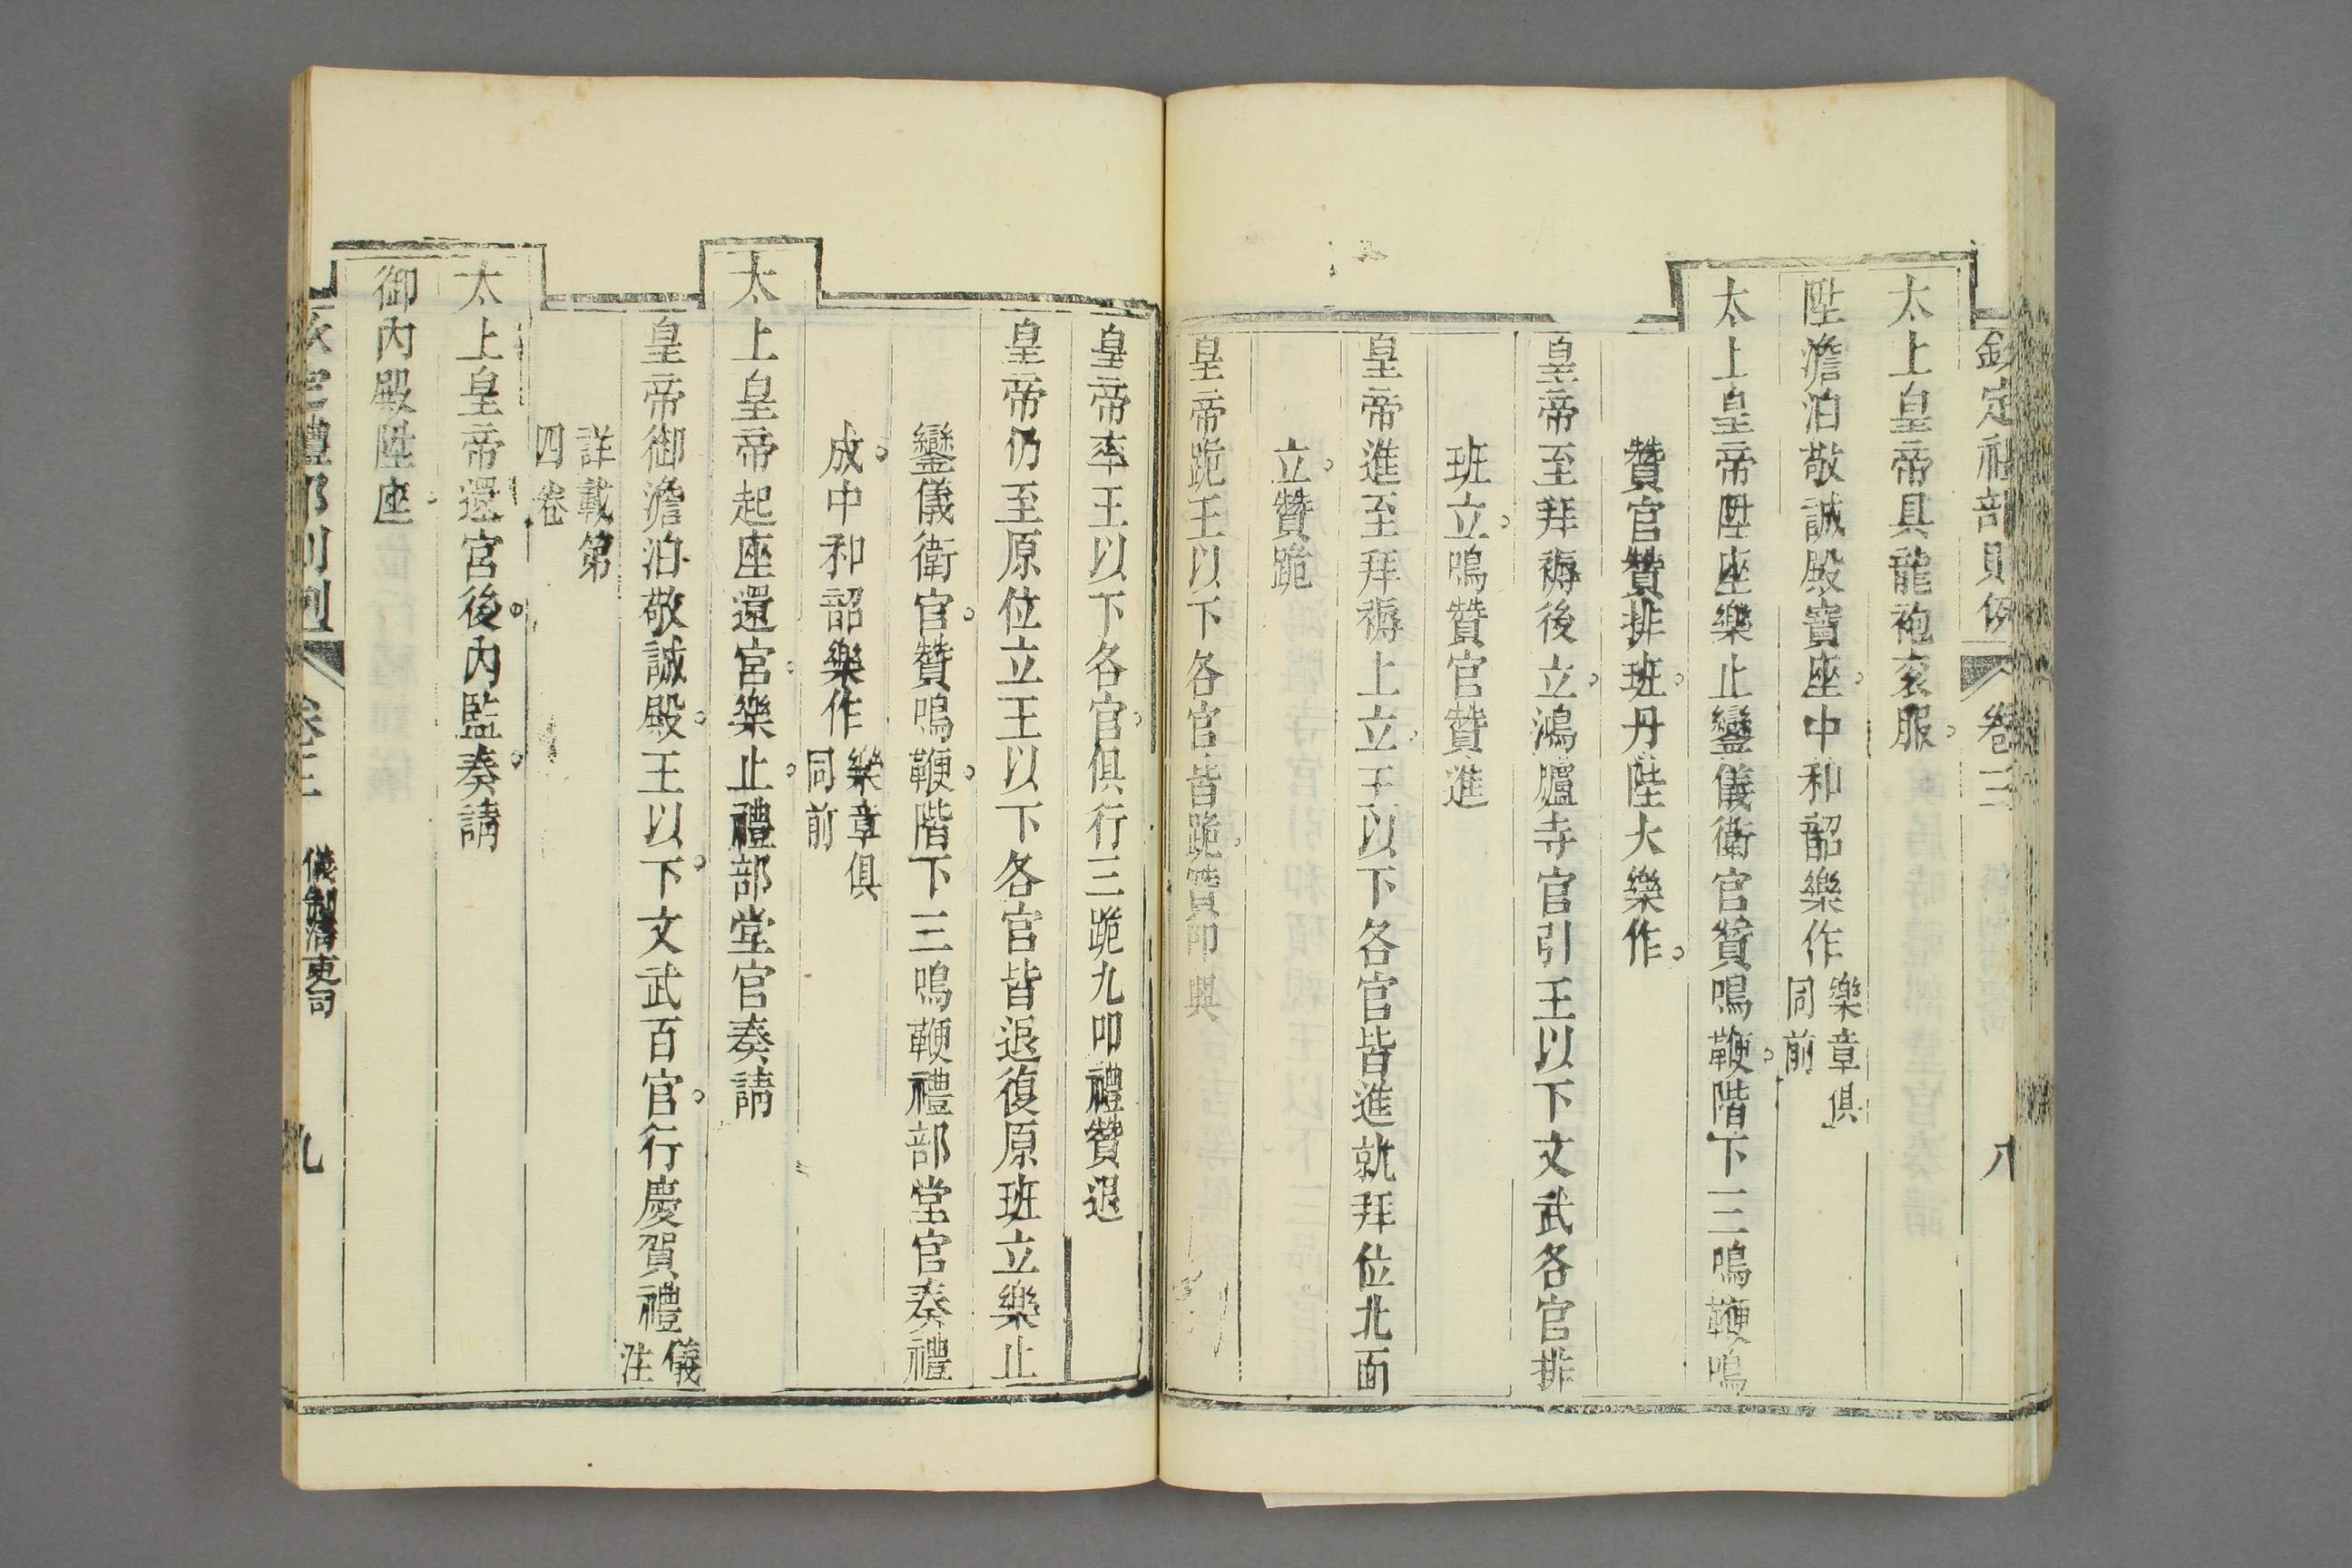 欽定禮部則例 卷三 八
太上皇帝具龍袍衮服
陞澹泊敬誠殿寶座中和韶樂作樂章俱同前
太上皇帝陞座樂止鑾儀衛官贊鳴鞭階下三鳴鞭鳴
贊官贊排班丹陛大樂作
皇帝至拜褥後立鴻臚寺官引王以下文武各官排
班立鳴贊官贊進
皇帝進至拜褥上立王以下各官皆進就拜位北面
立贊跪
皇帝跪王以下各官皆跪贊叩興
皇帝率王以下各官俱行三跪九叩禮贊退
皇帝仍至原位立王以下各官皆退復原班立樂止
鑾儀衛官贊鳴鞭階下三鳴鞭禮部堂官奏禮
成中和韶樂作樂章俱同前
太上皇帝起座還宮樂止禮部堂官奏請
皇帝御澹泊敬誠殿王以下文武百官行慶賀禮儀注
詳載第四卷
太上皇帝還宮後內監奏請
御內殿陞座
欽定禮部則例 卷三 儀制清吏司 九